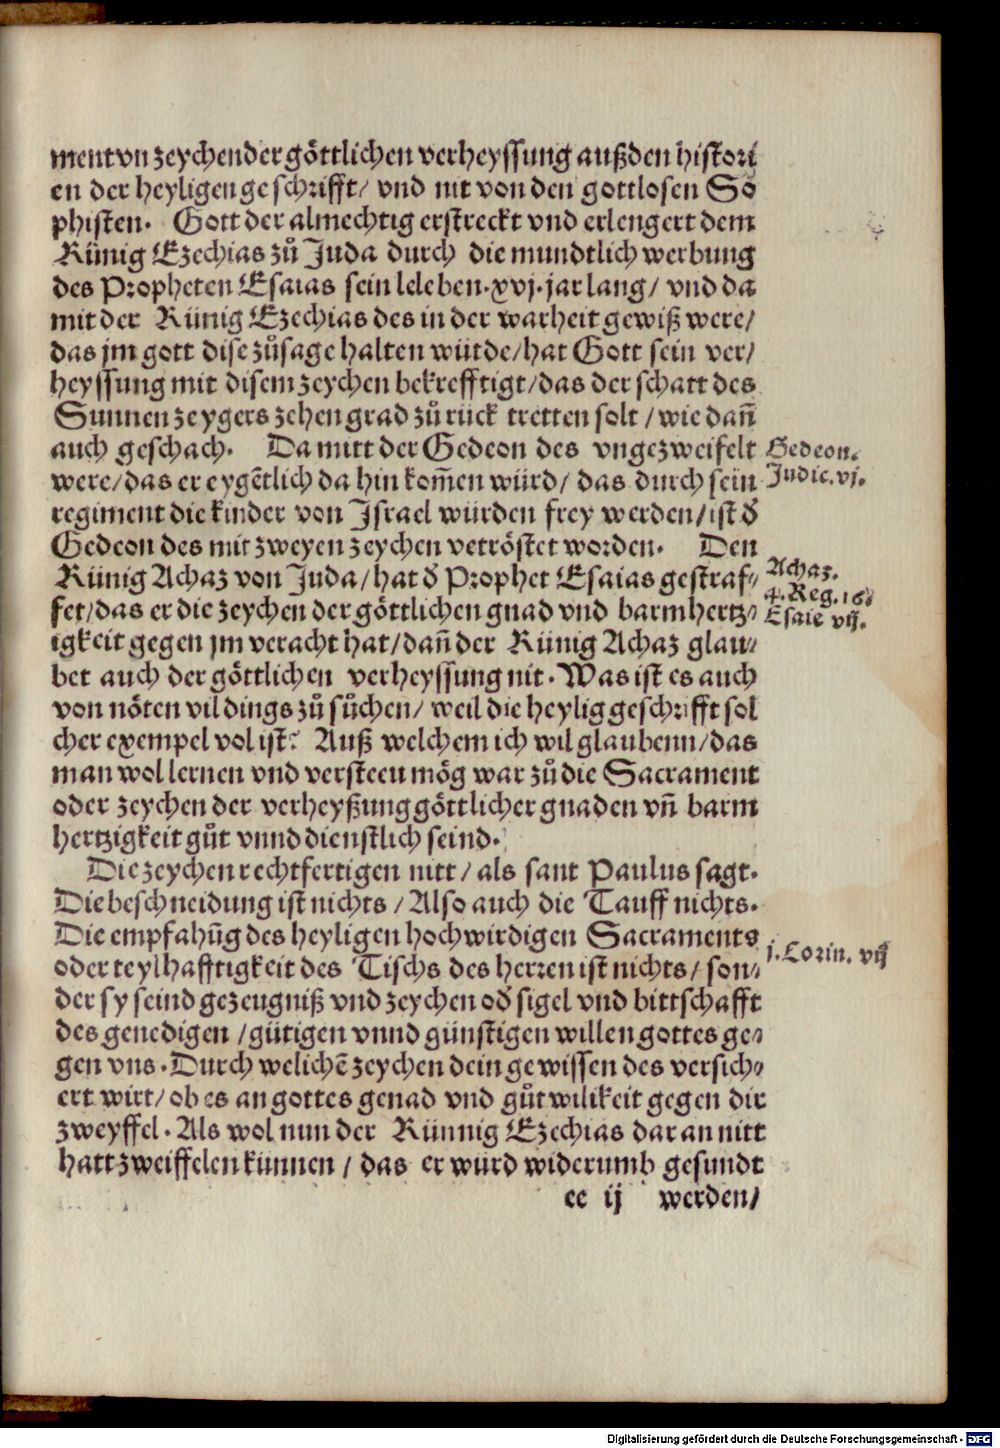 ment vn zeychen der göttlichen verheyssung außden histori
en der heyligen geschrifft/ vnd nit von den gottlosen So
phisten. Gott der almechtig erstreckt vnd erlengert dem
Künig Ezechias zů Juda durch die mundtlich werbung
des Propheten Esaias sein leleben.xvj.jar lang/ vnd da
mit der Künig Ezechias des in der warheit gewiß were/
das jm gott dise zůsage halten würde/hat Gott sein ver/
heyssung mit disem zeychen bekrefftigt/das der schatt des
Sunnen zeygers zehen grad zů rück tretten solt/wie dañ
auch geschach. Da mitt der Gedeon des vngezweifelt
were/das er eygẽtlich da hin kom̃en würd/ das durch sein
regiment die kinder von Israel würden frey werden/ist d̕
Gedeon des mit zweyen zeychen vetröstet worden. Den
Künig Achaz von Juda/hat d̕ Prophet Esaias gestraf⸗
fet/das er die zeychen der göttlichen gnad vnd barmhertz⸗
igkeit gegen jm veracht hat/dañ der Künig Achaz glau⸗
bet auch der göttlichen verheyssung nit. Was ist es auch
von nöten vil dings zů sůchen/ weil die heylig geschrifft sol
cher exempel vol ist? Auß welchem ich wil glaubenn/das
man wol lernen vnd versteen mög war zů die Sacrament
oder zeychen der verheyßung göttlicher gnaden vñ barm
hertzigkeit gůt vnnd dienstlich seind.
Die zeychen rechtfertigen nitt/ als sant Paulus sagt.
Die beschneidung ist nichts/Also auch die Tauff nichts.
Die empfahũg des heyligen hochwirdigen Sacraments
oder teylhafftigkeit des Tischs des herren ist nichts/ son⸗
der sy seind gezeugniß vnd zeychen od̕ sigel vnd bittschafft
des genedigen/gütigen vnnd günstigen willen gottes ge⸗
gen vns. Durch welichẽ zeychen dein gewissen des versich⸗
ert wirt/ ob es an gottes genad vnd gůtwilikeit gegen dir
zweyffel. Als wol nun der Künnig Ezechias dar an nitt
hatt zweiffelen künnen/ das er wurd widerumb gesundt
ee ij werden/
Gedeon.
Judic.vj.
Achaz.
4.Reg.16.
Esaie vij.
j.Corin. vij
Digitalisierung gefördert durch die Deutsche Forschungsgemeinschaft - DFG